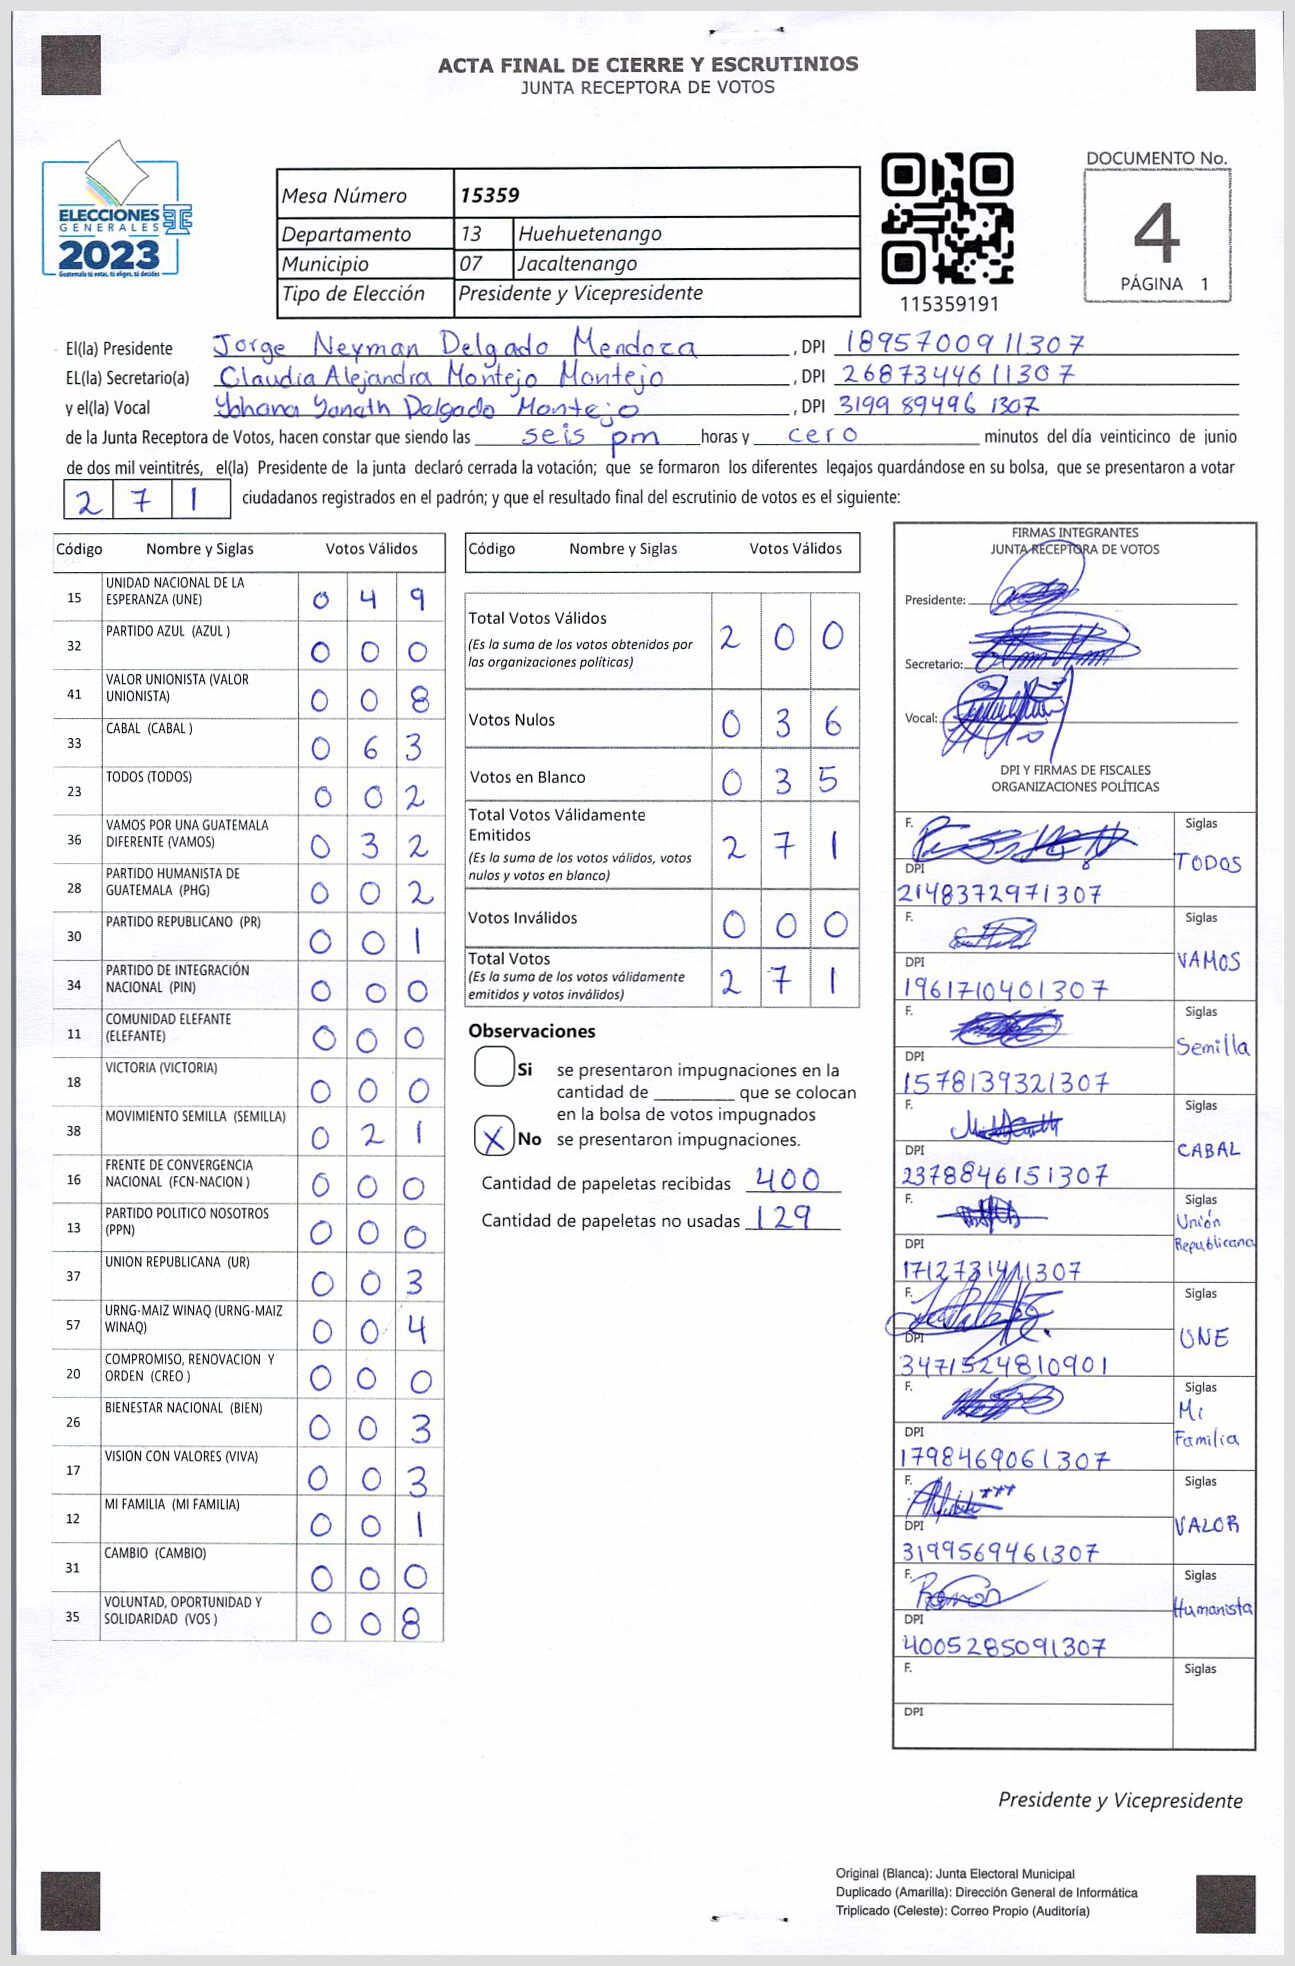 ACTA FINAL DE CIERRE Y ESCRUTINIOS
JUNTA RECEPTORA DE VOTOS
ELECCIONES
GENERALES
2023
Guatemala tú votas, tú eliges, tú decides
Mesa Número 15359
Departamento 13 Huehuetenango
Municipio 07 Jacaltenango
Tipo de Elección Presidente y Vicepresidente
115359191
DOCUMENTO No.
4
PÁGINA 1
El(la) Presidente Jorge Neyman Delgado Mendoza, DPI 1895700911307
EL(la) Secretario(a) Claudia Alejandra Montejo Montejo, DPI 2687344611307
y el(la) Vocal Yohana Yanath Delgado Montejo, DPI 3199 89496 1307
de la Junta Receptora de Votos, hacen constar que siendo las seis pm horas y cero minutos del día veinticinco de junio
de dos mil veintitrés, el(la) Presidente de la junta declaró cerrada la votación; que se formaron los diferentes legajos guardándose en su bolsa, que se presentaron a votar
2 7 1 ciudadanos registrados en el padrón; y que el resultado final del escrutinio de votos es el siguiente:
Código Nombre y Siglas Votos Válidos
15 UNIDAD NACIONAL DE LA
ESPERANZA (UNE) 0 4 9
32 PARTIDO AZUL (AZUL ) 0 0 0
41 VALOR UNIONISTA (VALOR
UNIONISTA) 0 0 8
33 CABAL (CABAL ) 0 6 3
23 TODOS (TODOS) 0 0 2
36 VAMOS POR UNA GUATEMALA
DIFERENTE (VAMOS) 0 3 2
28 PARTIDO HUMANISTA DE
GUATEMALA (PHG) 0 0 2
30 PARTIDO REPUBLICANO (PR) 0 0 1
34 PARTIDO DE INTEGRACIÓN
NACIONAL (PIN) 0 0 0
11 COMUNIDAD ELEFANTE
(ELEFANTE) 0 0 0
18 VICTORIA (VICTORIA) 0 0 0
38 MOVIMIENTO SEMILLA (SEMILLA) 0 2 1
16 FRENTE DE CONVERGENCIA
NACIONAL (FCN-NACION ) 0 0 0
13 PARTIDO POLITICO NOSOTROS
(PPN) 0 0 0
37 UNION REPUBLICANA (UR) 0 0 3
57 URNG-MAIZ WINAQ (URNG-MAIZ
WINAQ) 0 0 4
20 COMPROMISO, RENOVACION Y
ORDEN (CREO ) 0 0 0
26 BIENESTAR NACIONAL (BIEN) 0 0 3
17 VISION CON VALORES (VIVA) 0 0 3
12 MI FAMILIA (MI FAMILIA) 0 0 1
31 CAMBIO (CAMBIO) 0 0 0
35 VOLUNTAD, OPORTUNIDAD Y
SOLIDARIDAD (VOS ) 0 0 8
Código Nombre y Siglas Votos Válidos
Total Votos Válidos 2 0 0
(Es la suma de los votos obtenidos por
las organizaciones políticas)
Votos Nulos 0 3 6
Votos en Blanco 0 3 5
Total Votos Válidamente
Emitidos 2 7 1
(Es la suma de los votos válidos, votos
nulos y votos en blanco)
Votos Inválidos 0 0 0
Total Votos 2 7 1
(Es la suma de los votos válidamente
emitidos y votos inválidos)
Observaciones
Si se presentaron impugnaciones en la
cantidad de ________ que se colocan
en la bolsa de votos impugnados
X No se presentaron impugnaciones.
Cantidad de papeletas recibidas 400
Cantidad de papeletas no usadas 129
FIRMAS INTEGRANTES
JUNTA RECEPTORA DE VOTOS
Presidente:
Secretario:
Vocal:
DPI Y FIRMAS DE FISCALES
ORGANIZACIONES POLÍTICAS
F. Siglas
TODOS
DPI
2148372971307
F. Siglas
VAMOS
DPI
1961710401307
F. Siglas
Semilla
DPI
1578139321307
F. Siglas
CABAL
DPI
2378846151307
F. Siglas
Unión
Republicana
DPI
1712731411307
F. Siglas
UNE
DPI
3471524810901
F. Siglas
Mi
Familia
DPI
1798469061307
F. Siglas
VALOR
DPI
3199569461307
F. Ramón Siglas
Humanista
DPI
4005285091307
F. Siglas
DPI
Presidente y Vicepresidente
Original (Blanca): Junta Electoral Municipal
Duplicado (Amarilla): Dirección General de Informática
Triplicado (Celeste): Correo Propio (Auditoría)